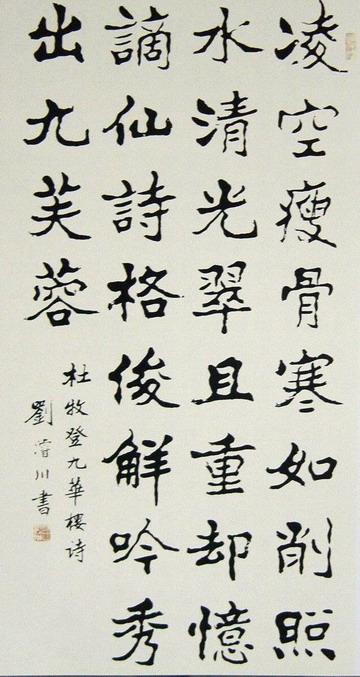 凌空瘦骨寒如削照
水清光翠且重却憶
謫仙詩格俊解吟秀
出九芙蓉
杜牧登九華樓诗
劉川書